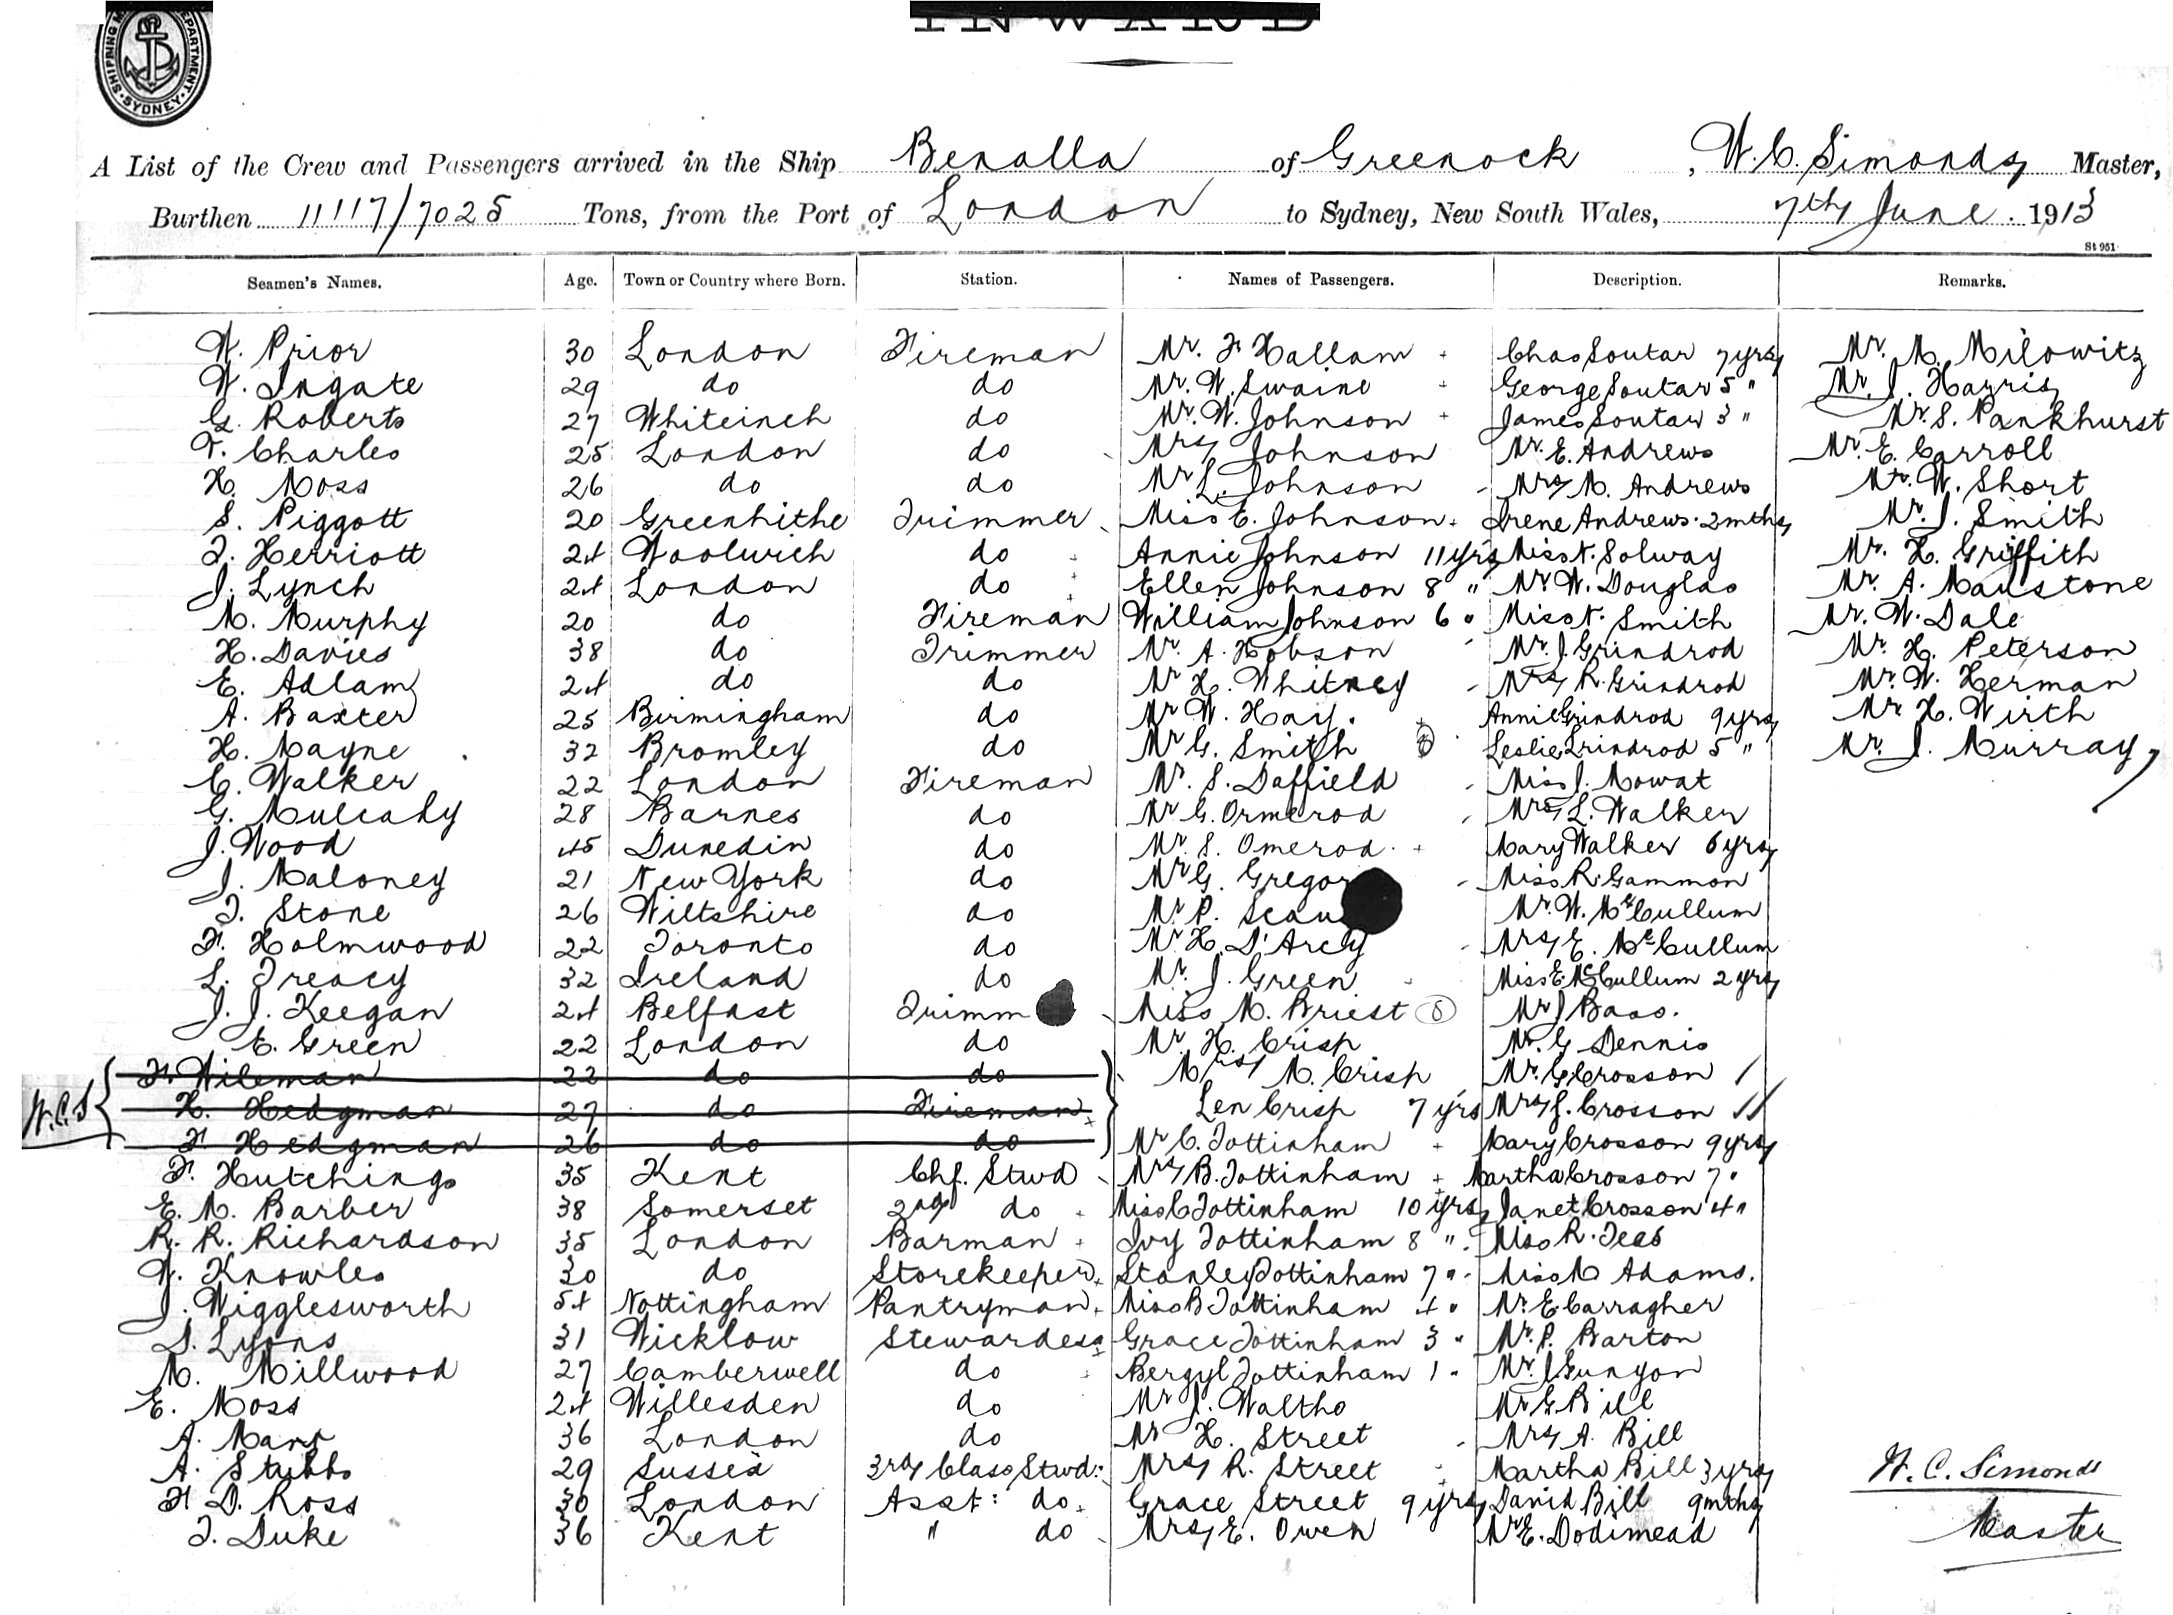 INWARD
SHIPPING DEPARTMENT SYDNEY
A List of the Crew and Passengers arrived in the Ship Benalla of Greenock, W. C. Simonds Master,
Burthen 11117/7025 Tons, from the Port of London to Sydney, New South Wales, 7th June. 1913
St 951
Seamen's Names. Age. Town or Country where Born. Station. Names of Passengers. Description. Remarks.
W. Prior 30 London Fireman Mr. F Hallam Chas Soutar 7 yrs Mr. M. Milowitz
W. Ingate 29 do do Mr. W. Swaine George Soutar 5 " Mr. J. Harris
G. Roberts 27 Whiteinch do Mr. W. Johnson James Soutar 3 " Mr. S. Pankhurst
T. Charles 25 London do Mrs Johnson Mr. E. Andrews Mr. E. Carroll
H. Moss 26 do do Mr L. Johnson Mrs M. Andrews Mr. W. Short
S. Piggott 20 Greenhithe Trimmer Miss E. Johnson Irene Andrews. 2 mths Mr. J. Smith
T. Herriott 24 Woolwich do Annie Johnson 11 yrs Miss N. Solway Mr. H. Griffith
J. Lynch 24 London do Ellen Johnson 8 " Mr. W. Douglas Mr. A. Maustone
M. Murphy 20 do Fireman William Johnson 6 " Miss N. Smith Mr. W. Dale
H. Davies 38 do Trimmer Mr. A. Hobson Mr. J. Grindrod Mr. H. Peterson
E. Adlam 24 do do Mr H. Whitney Mrs R. Grindrod Mr. W. Herman
A. Baxter 25 Birmingham do Mr W. Hay. Annie Grindrod 9 yrs Mr H. Wirth
H. Mayne 32 Bromley do Mr G. Smith Leslie Grindrod 5 " Mr. J. Murray
C. Walker 22 London Fireman Mr. S. Daffield Miss J. Mowat
G. Mulcahy 28 Barnes do Mr G. Ormerod Mrs L. Walker
J. Wood 45 Dunedin do Mr. S. Omerod. Mary Walker 6 yrs
J. Maloney 21 New York do Mr G. Gregor Miss R. Gammon
T. Stone 26 Wiltshire do Mr. P. Mr. W. McCullum
F. Holmwood 22 Toronto do Mr H. D'Arcy Mrs E. McCullum
L. Treacy 32 Ireland do Mr. J. Green Miss E. McCullum 2 yrs
J. J. Keegan 24 Belfast Trimm Miss M. Priest Mr J Bass.
E. Green 22 London do Mr. H. Crisp Mr. G Dennis
F. Wileman 22 do do Mrs M. Crisp Mr. G Crosson
W.C.S H. Hedgman 27 do Fireman Len Crisp 7 yrs Mrs J. Crosson
F Hedgman 26 do do Mr C. Tottinham Mary Crosson 9 yrs
F. Hutchings 35 Kent Chf. Stwd Mrs B. Tottinham Martha Crosson 7 "
E. M. Barber 38 Somerset 2nd do Miss C Tottinham 10 yrs Janet Crosson 4 "
R. R. Richardson 35 London Barman Ivy Tottinham 8 " Miss R. Tees
W. Knowles 30 do Storekeeper Stanley Tottinham 7 " Miss M Adams.
J. Wigglesworth 54 Nottingham Pantryman Miss B Tottinham 4 " Mr. E. Carragher
D. Lyons 31 Wicklow Stewardess Grace Tottinham 3 " Mr. P. Barton
M. Millwood 27 Camberwell do Bergyl Tottinham 1 " Mr. J Gunyon
E. Moss 24 Willesden do Mr J. Waltho Mr G. Bill
A. Marr 36 London do Mr H. Street Mrs A. Bill
A. Stubbs 29 Sussex 3rd Class Stwd: Mrs R. Street Martha Bill 3 yrs W. C. Simonds
F D. Ross 30 London Asst: do Grace Street 9 yrs David Bill 9 mths
T. Duke 36 Kent " do Mrs E. Owen Mr E. Dodimead Master